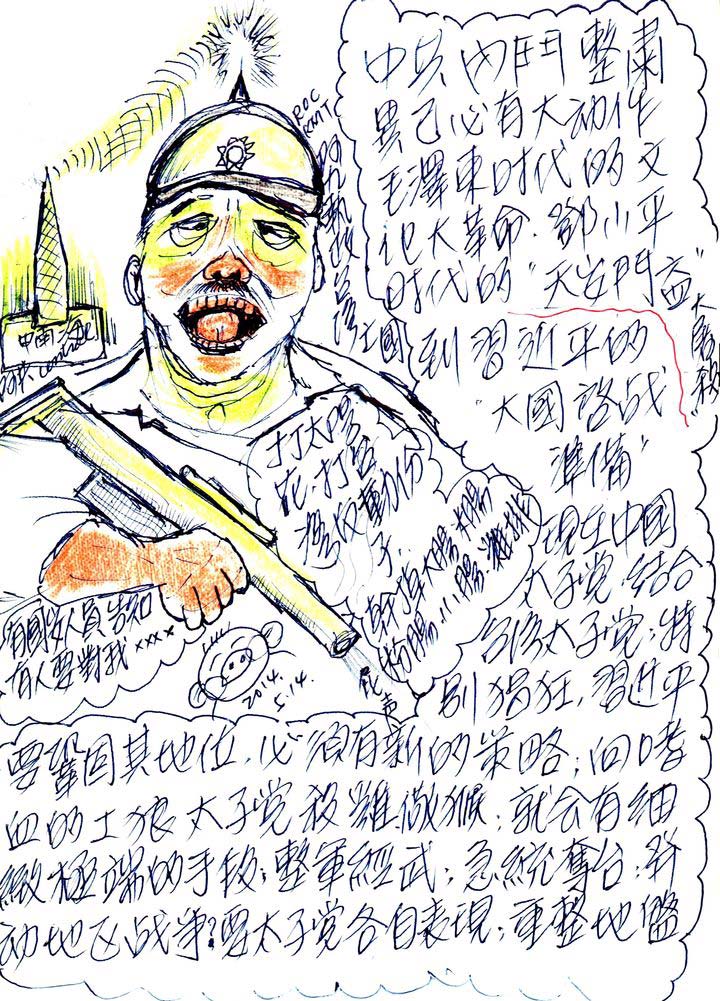 中共內鬥整肅
異己必有大动作
毛澤東时代的文
化大革命.鄧小平
时代的"天安門
到習近平的
"大國啓战
準備"
現在中國
太子党.結合
太子党;特
別猖狂,習近平
要鞏固其地位,必須有新的策略;回嗜
血的土狼太子党殺雞儆猴;就会有細
緻極端的手段;整軍經武;急統奪台;發
动地区战爭?要太子党各自表現;重整地盤
ROC
KMT
中国
打太陽
花.打台
獨反動份
子..
大腸.小腸
有國安人員告知
有人要對我xxxx
2014.
5.14.